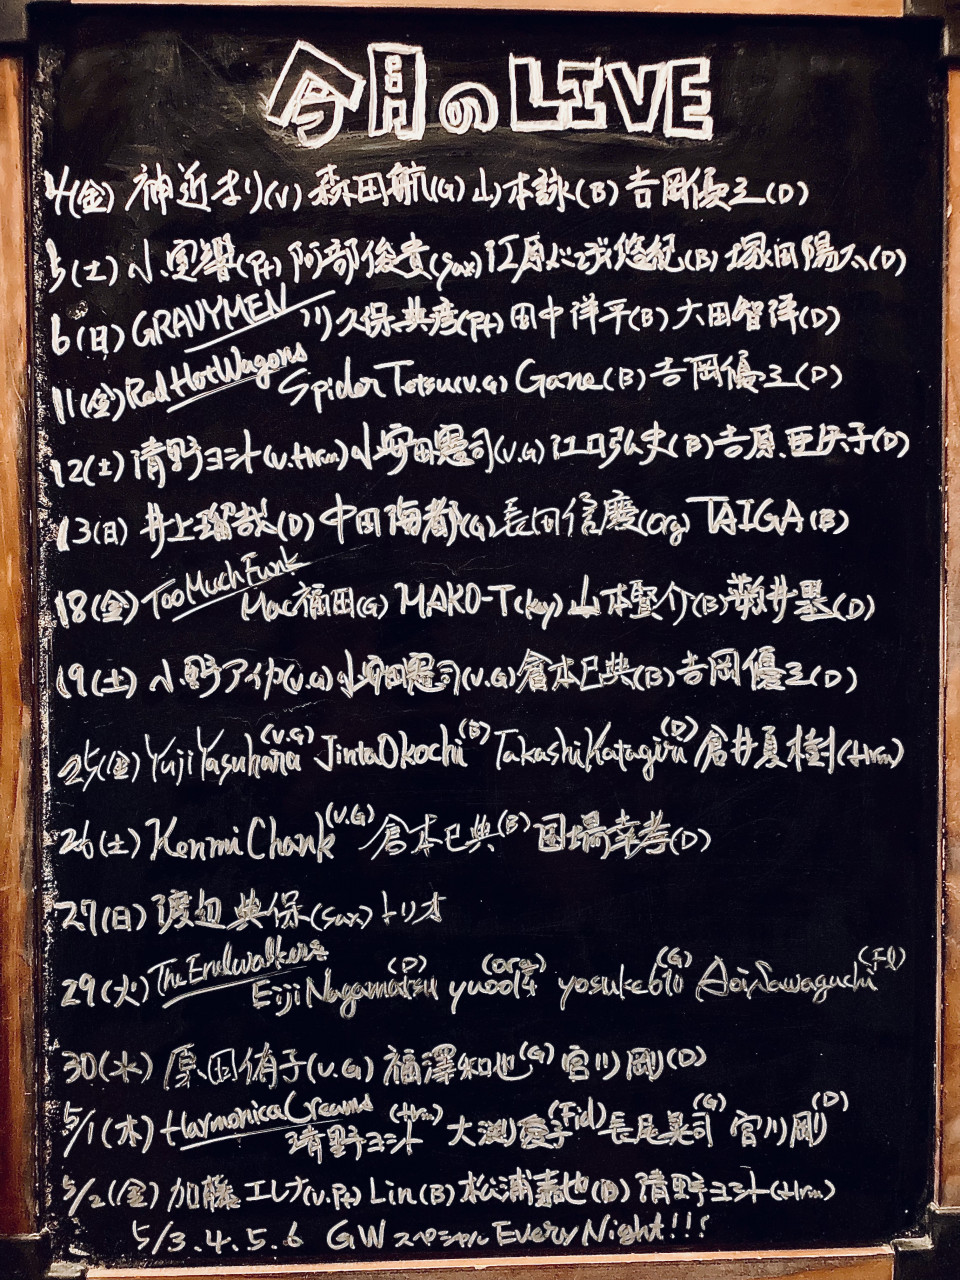 今月のLIVE
4(金) 神近まり(V) 森田航(G) 山本詠(B) 吉岡優三(D)
5(土) 小室響(Pf) 阿部俊貴(Sax) 江原 悠紀(B) 塚田陽太(D)
6(日) GRAVYMEN 久保典彦(Pf) 田中洋平(B) 大田智洋(D)
11(金) Red Hot Wagons Spider Tetsu(V.G) Gane(B) 吉岡優三(D)
12(土) 清野ヨシト(V.Hrm) 小安田憲司(V.G) 江口弘史(B) 吉原亜矢子(D)
13(日) 井上瑠哉(D) 中田海都(G) 長田信慶(Org) TAIGA(B)
18(金) Too Much Funk Mac福田(G) MAKO-T(key) 山本賢介(B) 藪井塁(D)
19(土) 小野アイカ(V.G) 小安田憲司(V.G) 倉本巳典(B) 吉岡優三(D)
25(金) Yuji Yasuhara(V.G) Jinta Okochi(B) Takashi Katagiri(D) 倉井夏樹(Hrm)
26(土) Kenmi Chank(V.G) 倉本巳典(B) 固場幸孝(D)
27(日) 渡辺典保(Sax) トリオ
29(火) The Endwalkers Eiji Nagamatsu(D) yuool4(Org) yosuke610(G) Aoi Sawaguchi(Fl)
30(水) 原田侑子(V.G) 福澤和也(G) 宮川剛(D)
5/1(木) Harmonica Creams 清野ヨシト(Hrm) 大渕愛子(Fid) 長尾晃司(G) 宮川剛(D)
5/2(金) 加藤エレナ(V.Pf) Lin(B) 松浦嘉也(D) 清野ヨシト(Hrm)
5/3.4.5.6 GWスペシャル Every Night!!!